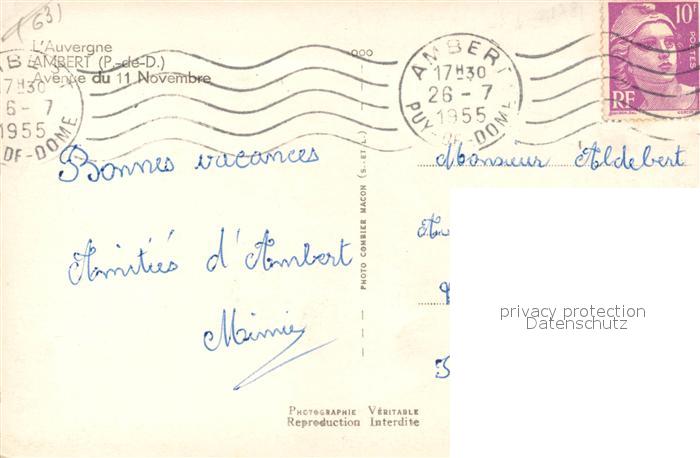 (63)
L'Auvergne
AMBERT (P.-de-D.)
Avenue du 11 Novembre
17H30
6 - 7
1955
DE-DOME
AMBERT
17H30
26 - 7
1955
PUY-DE-DOME
10F
POSTES
RF
Bonnes vacances
Amitiés d'Ambert
Mimie
PHOTO COMBIER MACON (S.-ET-L.)
Monsieur Aldebert
privacy protection
Datenschutz
PHOTOGRAPHIE VÉRITABLE
Reproduction Interdite